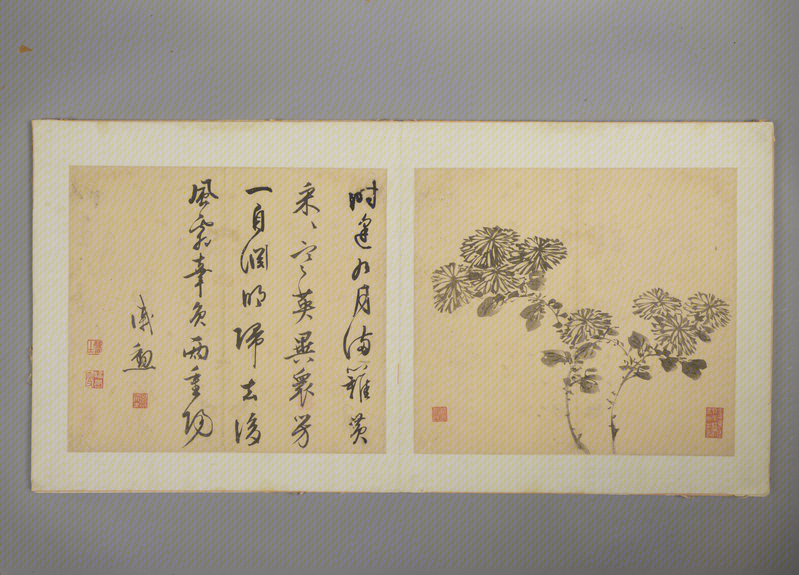 時逢九月滿籬黃
采采寒英異衆芳
一自淵明歸去後
風霜辜負兩重陽
勳